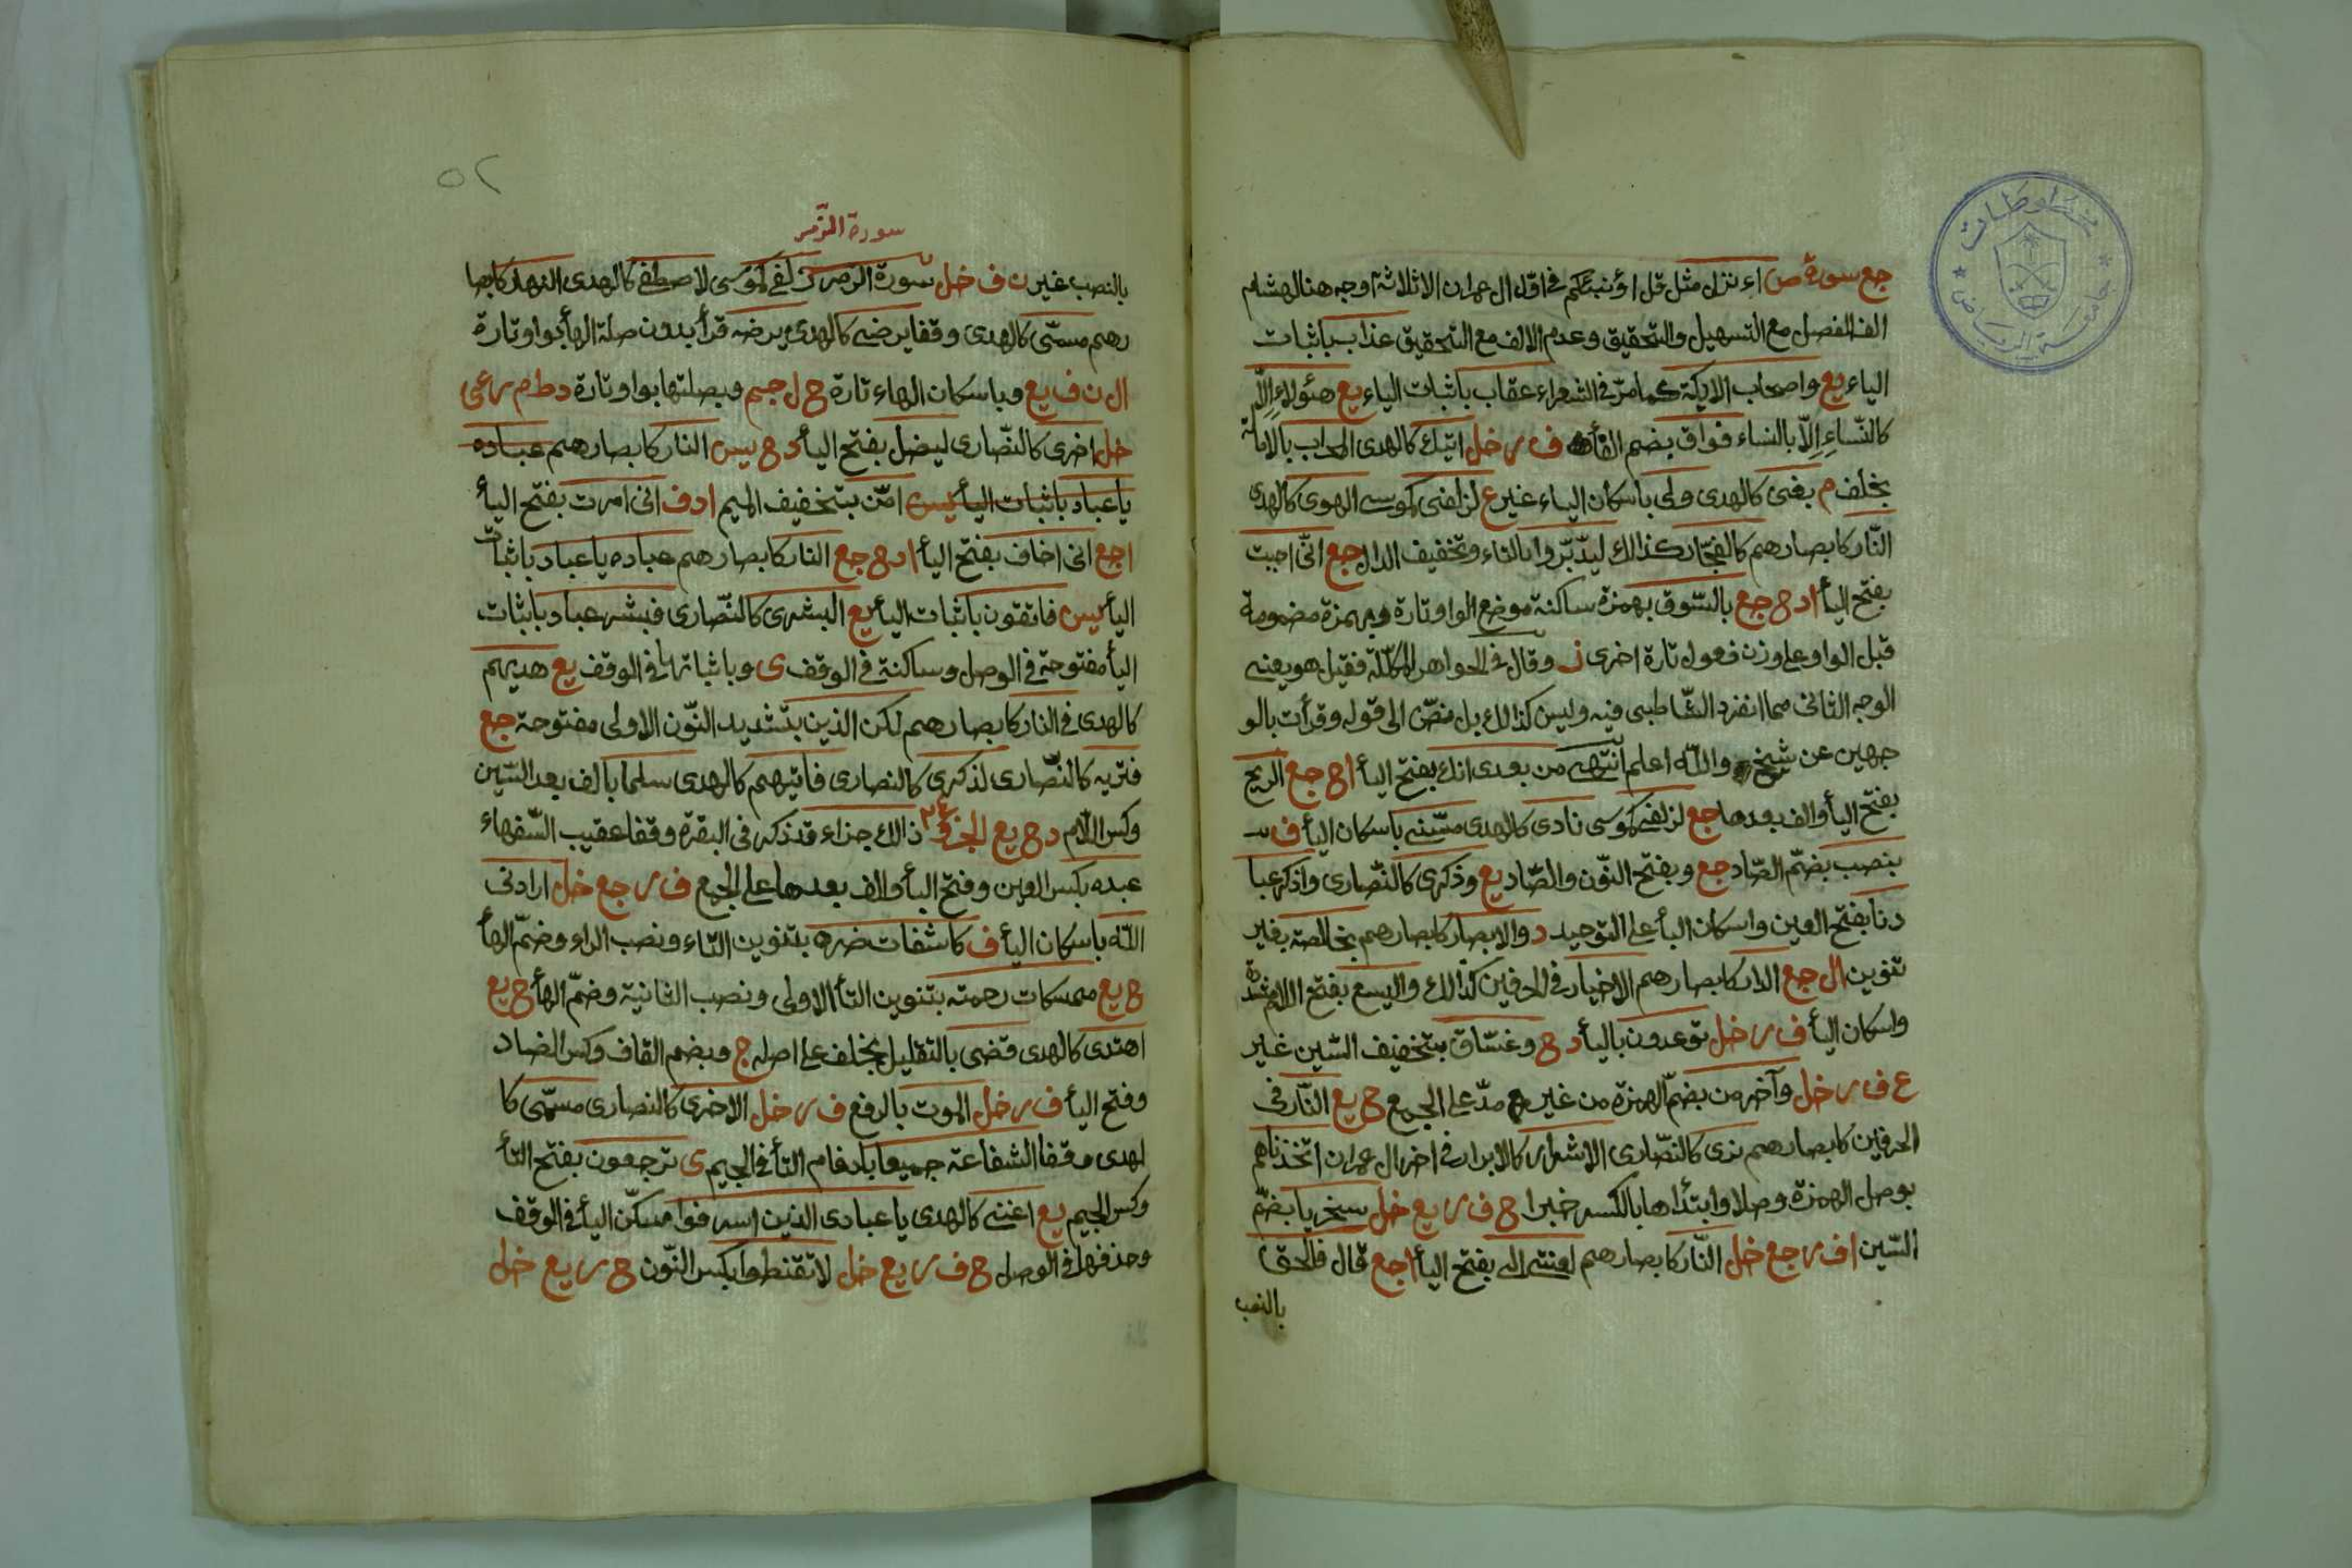 جع سورة ص اءنزل مثل قل اؤنبئكم فى اوّل ال عمران الا ثلاثة اوجه هنا لهشام
الف الفصل مع التسهيل والتحقيق وعدم الالف مع التحقيق عذاب باثبات
الياء يع واصحاب الايكة كما مرّ فى الشعراء عقاب باثبات الياء يع هئولاء الاّ
كالنّساء الاّ بالنساء فواق بضم الفأ ف ر خل اتيك كالهدى المحراب بالامالة
بخلف م بغى كالهدى ولى باسكان الياء غير ع لزلفى كموسى الهوى كالهدى
النّار كابصارهم كالفجّار كذالك ليدّبّروا بالتاء وتخفيف الدال جع انّى احببت
بفتح اليأ ا د ح جع بالسّوق بهمزة ساكنة موضع الواو تارة وبهمزة مضمومة
قبل الواو على وزن فعول تارة اخرى ز وقال فى الجواهر المكلّلة فقيل هو يعنى
الوجه الثانى مما انفرد الشّاطبى فيه وليس كذالك بل منصّ الى قوله وقرأت بالو
جهين عن شيخ والله اعلم انتهى من بعدى انك بفتح اليأ ا ح جع الريح
بفتح اليأ والف بعدها جع لزلفى كموسى نادى كالهدى مسّنى باسكان اليأ ف
بنصب بضمّ الصّاد جع وبفتح النّون والصّاد يع وذكرى كالنّصارى واذكر عبا
دنا بفتح العين واسكان البأ على التوحيد د والابصار كابصارهم بخالصة بغير
تنوين ا ل جع الدار كابصارهم الاخيار فى الحرفين كذالك واليسع بفتح اللام مشدّدة
واسكان اليأ ف ر خل توعدون باليأ د ح وغسّاق بتخفيف السّين غير
ع ف ر خل وآخر من بضمّ الهمزة من غير مدّ على الجمع ح يع النّار فى
الحرفين كابصارهم نرى كالنّصارى الاشرار كالابرار فى اخر ال عمران اتّخذناهم
بوصل الهمزة وصلا وابتدأها بالكسر خبرا ح ف ر يع خل سخريا بضمّ
السّين ا ف ر جع خل النّار كابصارهم لعنتى الى بفتح اليأ ا جع قال فالحق
بالنصب
٥٢
سورة الزّمر
بالنصب غير ن ف خل سورة الزمر زلفى كموسى لاصطفى كالهدى النهار كابصا
رهم مسمّى كالهدى وقفا يرضى كالهدى يرضه قرأ بدون صلة الهأ بواو تارة
ا ل ن ف يع وباسكان الهاء تارة ح ل جم وبصلتها بواو تارة د ط م ر عى
خل اخرى كالنّصارى ليضل بفتح اليأ د ح يس النار كابصارهم عباده
يا عباد باثبات اليأ يس امّن بتخفيف الميم ا د ف انى امرت بفتح اليأ
ا جع انى اخاف بفتح اليأ ا د ح جع النار كابصارهم عباده يا عباد باثبات
اليأ يس فاتقون باثبات اليأ يع البشرى كالنّصارى فبشر عباد باثبات
اليأ مفتوحة فى الوصل وساكنة فى الوقف ى وباثباتها فى الوقف يع هديهم
كالهدى فى النار كابصارهم لكن الذين بتشديد النّون الاولى مفتوحة جع
فتريه كالنّصارى لذكرى كالنصارى فاتيهم كالهدى سلما بالف بعد السّين
وكسر اللّام د ح يع الجزؤ ٢٤ ذالك جزاء قد ذكر فى البقرة وقفا عقيب السّفهاء
عبده بكسر العين وفتح البأ والف بعدها على الجمع ف ر جع خل ارادنى
الله باسكان اليأ ف كاشفات ضره بتنوين التاء ونصب الراء وضمّ الهأ
ح يع ممسكات رحمته بتنوين التأ الاولى ونصب الثانية وضمّ الهأ ح يع
اهتدى كالهدى قضى بالتقليل بخلف على اصله ج وبضم القاف وكسر الضاد
وفتح اليأ ف ر خل الموت بالرفع ف ر خل الاخرى كالنصارى مسمّى كا
لهدى وقفا الشفاعة جميعا بادغام التأ فى الجيم ى ترجعون بفتح التأ
وكسر الجيم يع اغنى كالهدى يا عبادى الذين اسرفوا مسكّن اليأ فى الوقف
وحذفها فى الوصل ح ف ر يع خل لا تقنطوا بكسر النّون ح ر يع خل